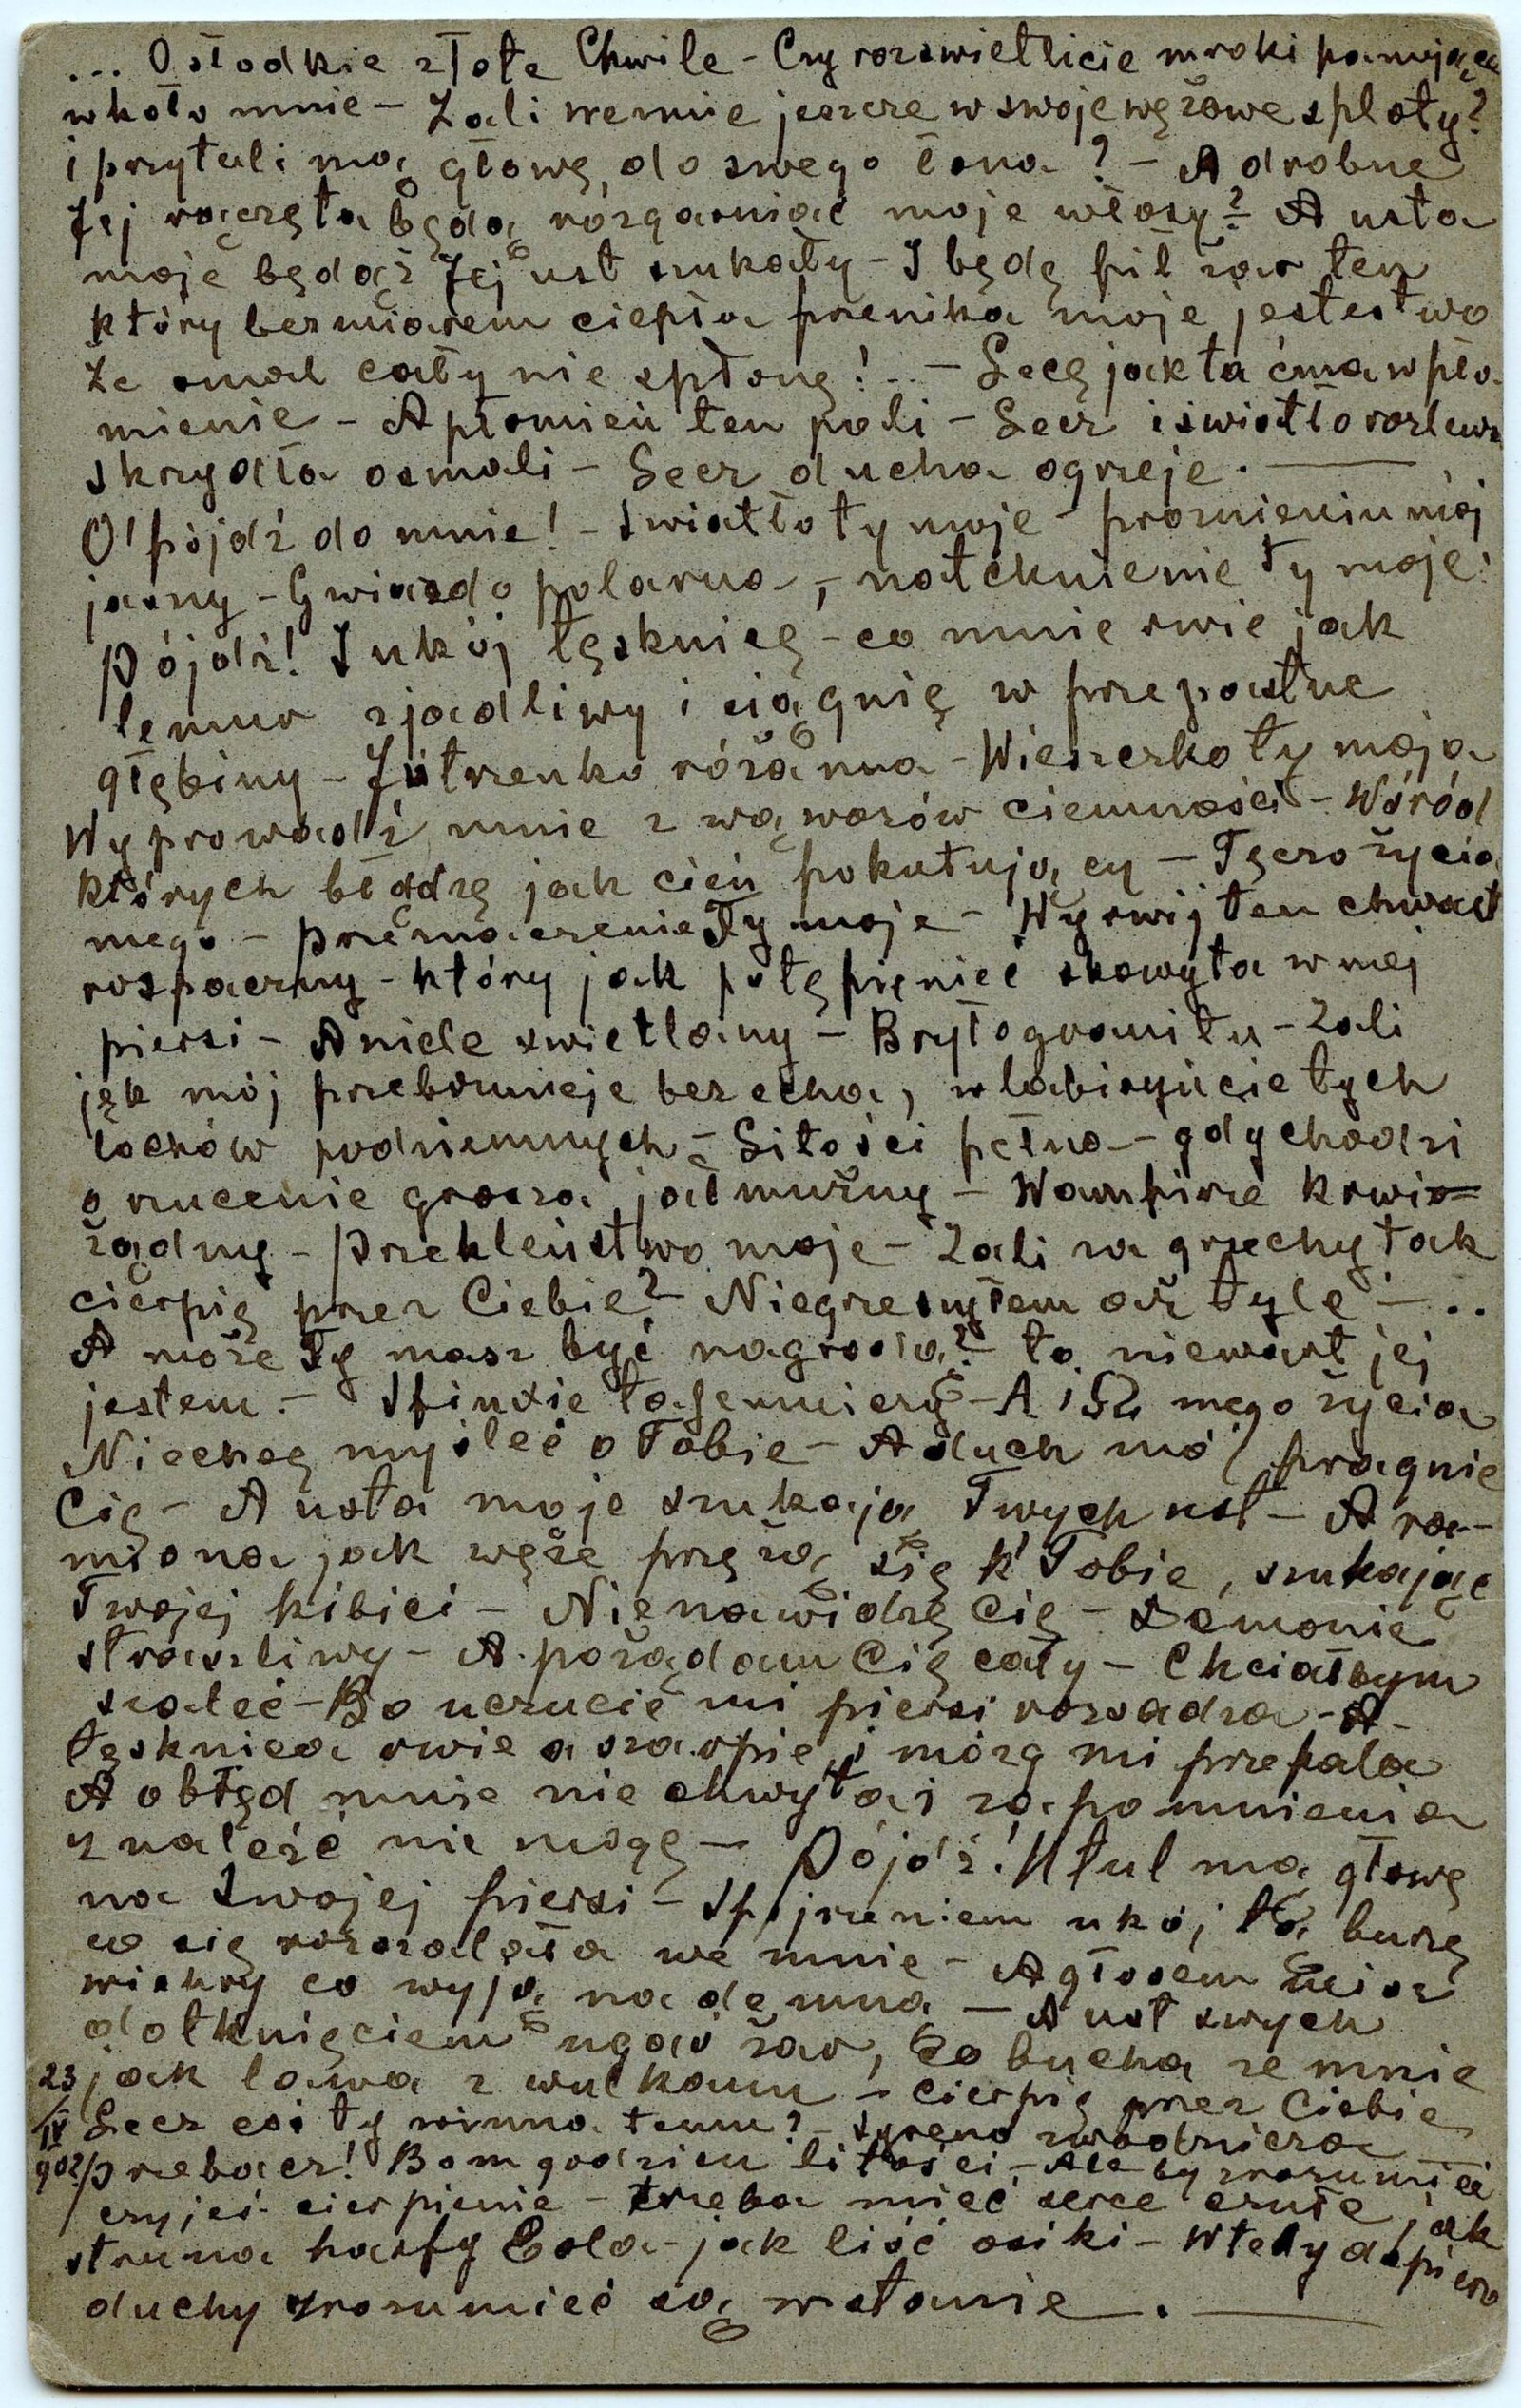 ... O słodkie złote Chwile - Czy rozświetlicie mroki panujące
wkoło mnie - Zali weźmie jeszcze w swoje wężowe sploty?
i przytuli mą głowę, do swego łona? - A drobne
Jej rączęta będą rozgarniać moje włosy? - A usta
moje będąż Jej ust szukały - I będę pił żar ten
który bezmiarem ciepła przenika moje jestestwo
że omal cały nie spłonę! .. - Lecę jak ta ćma w pło-
mienie - A płomień ten pali - Lecz i światło rozlewa
skrzydła osmali - Lecz ducha ogrzeje. —
O! pójdź do mnie! - Światło ty moje - promieniu mój
jasny - Gwiazdo polarna -, natchnienie Ty moje!
Pójdź! I ukój tęsknicę - co mnie rwie jak
lemur zjadliwy i ciągnię w przepastne
głębiny - Jutrzenko różanna - Wieszczko ty moja
Wyprowadź mnie z wąwozów ciemności - Wśród
których błądzę jak cień pokutujący - Tęczo życia
mego - przeznaczenie Ty moje - Wyrwij ten chwast
rospaczny - który jak potępieniec skowyta w mej
piersi - Aniele świetlany - Bryło granitu - Zali
jęk mój przebrzmieje bez echa, w labiryńcie tych
lochów podziemnych - Litości pełna - gdy chodzi
o rzucenie grosza jałmużny - Wampirze krwio=
żądny - przekleństwo moje - Zali za grzechy tak
cierpię przez Ciebie? - Niegrzeszyłem aż tyle - ..
A może Ty masz być nagrodą? - to niewart jej
jestem. - Sfinxie tajemniczy - A i Ω mego życia
Niechcę myśleć o Tobie - A duch mój pragnie
Cię - A usta moje szukają Twych ust - A ra-
miona jak węże prężą się k' Tobie, szukając
Twojej kibici - Nienawidzę Cię - Demonie
straszliwy - A pożądam Cię cały - Chciałbym
szaleć - Bo uczucie mi piersi rozsadza - A -
tęsknica rwie a szarpie i mózg mi przepala
A obłęd mnie nie chwyta i zapomnienia
znaleźć nie mogę - Pójdź! Utul mą głowę
na swojej piersi - Spojrzeniem ukój tą burzę
co się rozszalała we mnie - A głosem ucisz
wichry co wyją nademną - A ust swych
dotknięciem ugaś żar, co bucha ze mnie
jak lawa z wulkanu - cierpię przez Ciebie
23/IV 902
Lecz coś ty winna temu? - Syreno zwodnicza -
przebacz! Bom godzien litości - Ale by zrozumieć
czyjeś cierpienie - trzeba mieć serce czułe jak
struna harfy Eola - jak liść osiki - Wtedy dopiero
duchy zrozumieć są wstanie. —